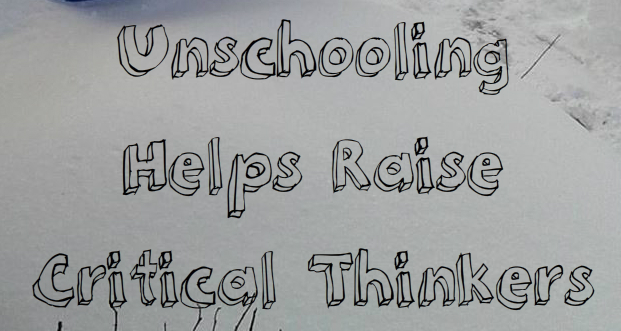 Unschooling
Helps Raise
Critical Thinkers